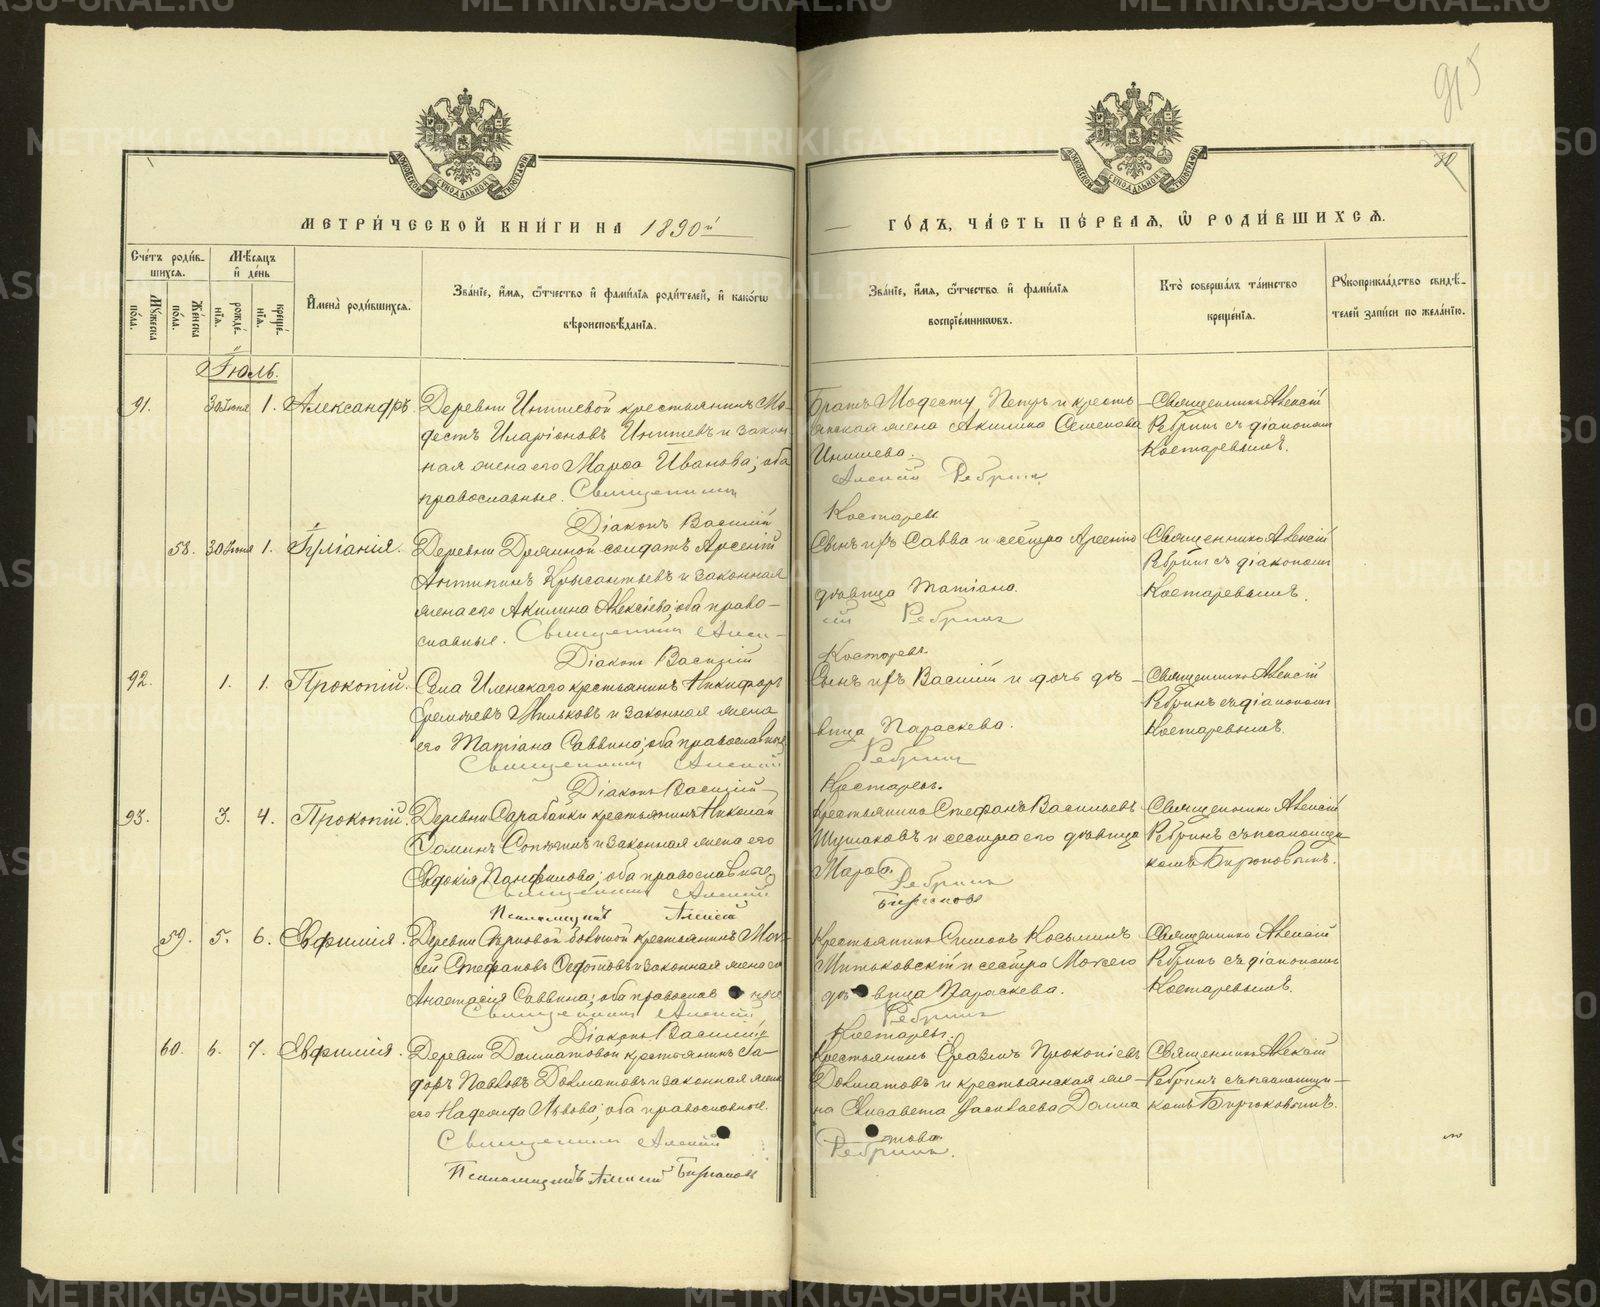 915
70
МОСКОВСКОЙ СѴНОДАЛЬНОЙ ТИПОГРАФІИ
МОСКОВСКОЙ СѴНОДАЛЬНОЙ ТИПОГРАФІИ
МЕТРИ́ЧЕСКОЙ КНИ́ГИ НА 1890й
ГО́ДЪ, ЧА́СТЬ ПЕ́РВАѦ, Ѡ҆ РОДИ́ВШИХСѦ.
Сче́тъ роди́в-
шихся.
Мѣ́сяцъ
и҆ де́нь
Мꙋ́жеска
по́ла.
Же́нска
по́ла.
рожде́-
нїя.
креще́-
нїя.
И҆мена̀ роди́вшихся.
Зва́нїе, и҆́мя, ѻ҆́тчество и҆ фами́лїя роди́телей, и҆ како́гѡ
вѣроисповѣ́данїя.
Зва́нїе, и҆́мя, ѻ҆́тчество и҆ фами́лїя
воспрїе́мникѡвъ.
Кто̀ соверша́лъ та́инство
креще́нїя.
Рꙋкоприкла́дство свидѣ́-
телей за́писи по жела́нїю.
Іюль.
91. 30 Іюня 1. Александръ. Деревни Инишевой крестьянинъ Мо-
дестъ Иларіоновъ Инишевъ и закон
ная жена его Марѳа Иванова; оба
православные. Священникъ
Діаконъ Василій
Братъ Модесту Петръ и кресть
янская жена Акилина Семенова
Инишева.
Алексій Ребринъ
Костаревъ
Священникъ Алексій
Ребринъ съ діакономъ
Костаревымъ.
58. 30 Іюня 1. Іуліанія. Деревни Дрянной солдатъ Арсеній
Антипинъ Крысантьевъ и законная
жена его Акилина Алексіева; оба право-
славные. Священникъ Алек-
Діаконъ Василій
Сынъ ихъ Савва и сестра Арсенію
дѣвица Татіана.
сій Ребринъ
Костаревъ.
Священникъ Алексій
Ребринъ съ діакономъ
Костаревымъ.
92. 1. 1. Прокопій. Села Иленскаго крестьянинъ Никифоръ
его Татіана Саввина; оба православные
Священникъ Алексій
Діаконъ Василій
Сынъ ихъ Василій и дочь дѣ-
вица Параскева.
Ребринъ
Костаревъ.
Священникъ Алексій
Ребринъ съ діакономъ
Костаревымъ.
93. 3. 4. Прокопій. Деревни Сарабайки крестьянинъ Николай
и законная жена его
Евдокія Панфилова; оба православные
Священникъ Алексій
Псаломщикъ Алексій
Крестьянинъ Стефанъ Васильевъ
и сестра его дѣвица
Ребринъ
Бирюковъ
Священникъ Алексій
Ребринъ съ псаломщи-
комъ Бирюковымъ.
59. 5. 6. Евфимія. крестьянинъ Мои-
сей Стефановъ Ѳедотовъ и законная жена его
Анастасія Саввина; оба православ ные
Священникъ Алексій
Діаконъ Василій
Крестьянинъ Симонъ Косьминъ
Митьковскій и сестра Моисею
дѣ вица Параскева.
Ребринъ
Костаревъ.
Священникъ Алексій
Ребринъ съ діакономъ
Костаревымъ.
60. 6. 7. Евфимія. Деревни Долматовой крестьянинъ Га-
Долматовъ и законная жена
его Надежда Львова; оба православные.
Священникъ Алексій
Псаломщикъ Алексій Бирюковъ
Крестьянинъ Прокопіевъ
Долматовъ и крестьянская же-
на Елисавета Долма
това.
Ребринъ.
Священникъ Алексій
Ребринъ съ псаломщи-
комъ Бирюковымъ.
METRIKI.GASO-URAL.RU